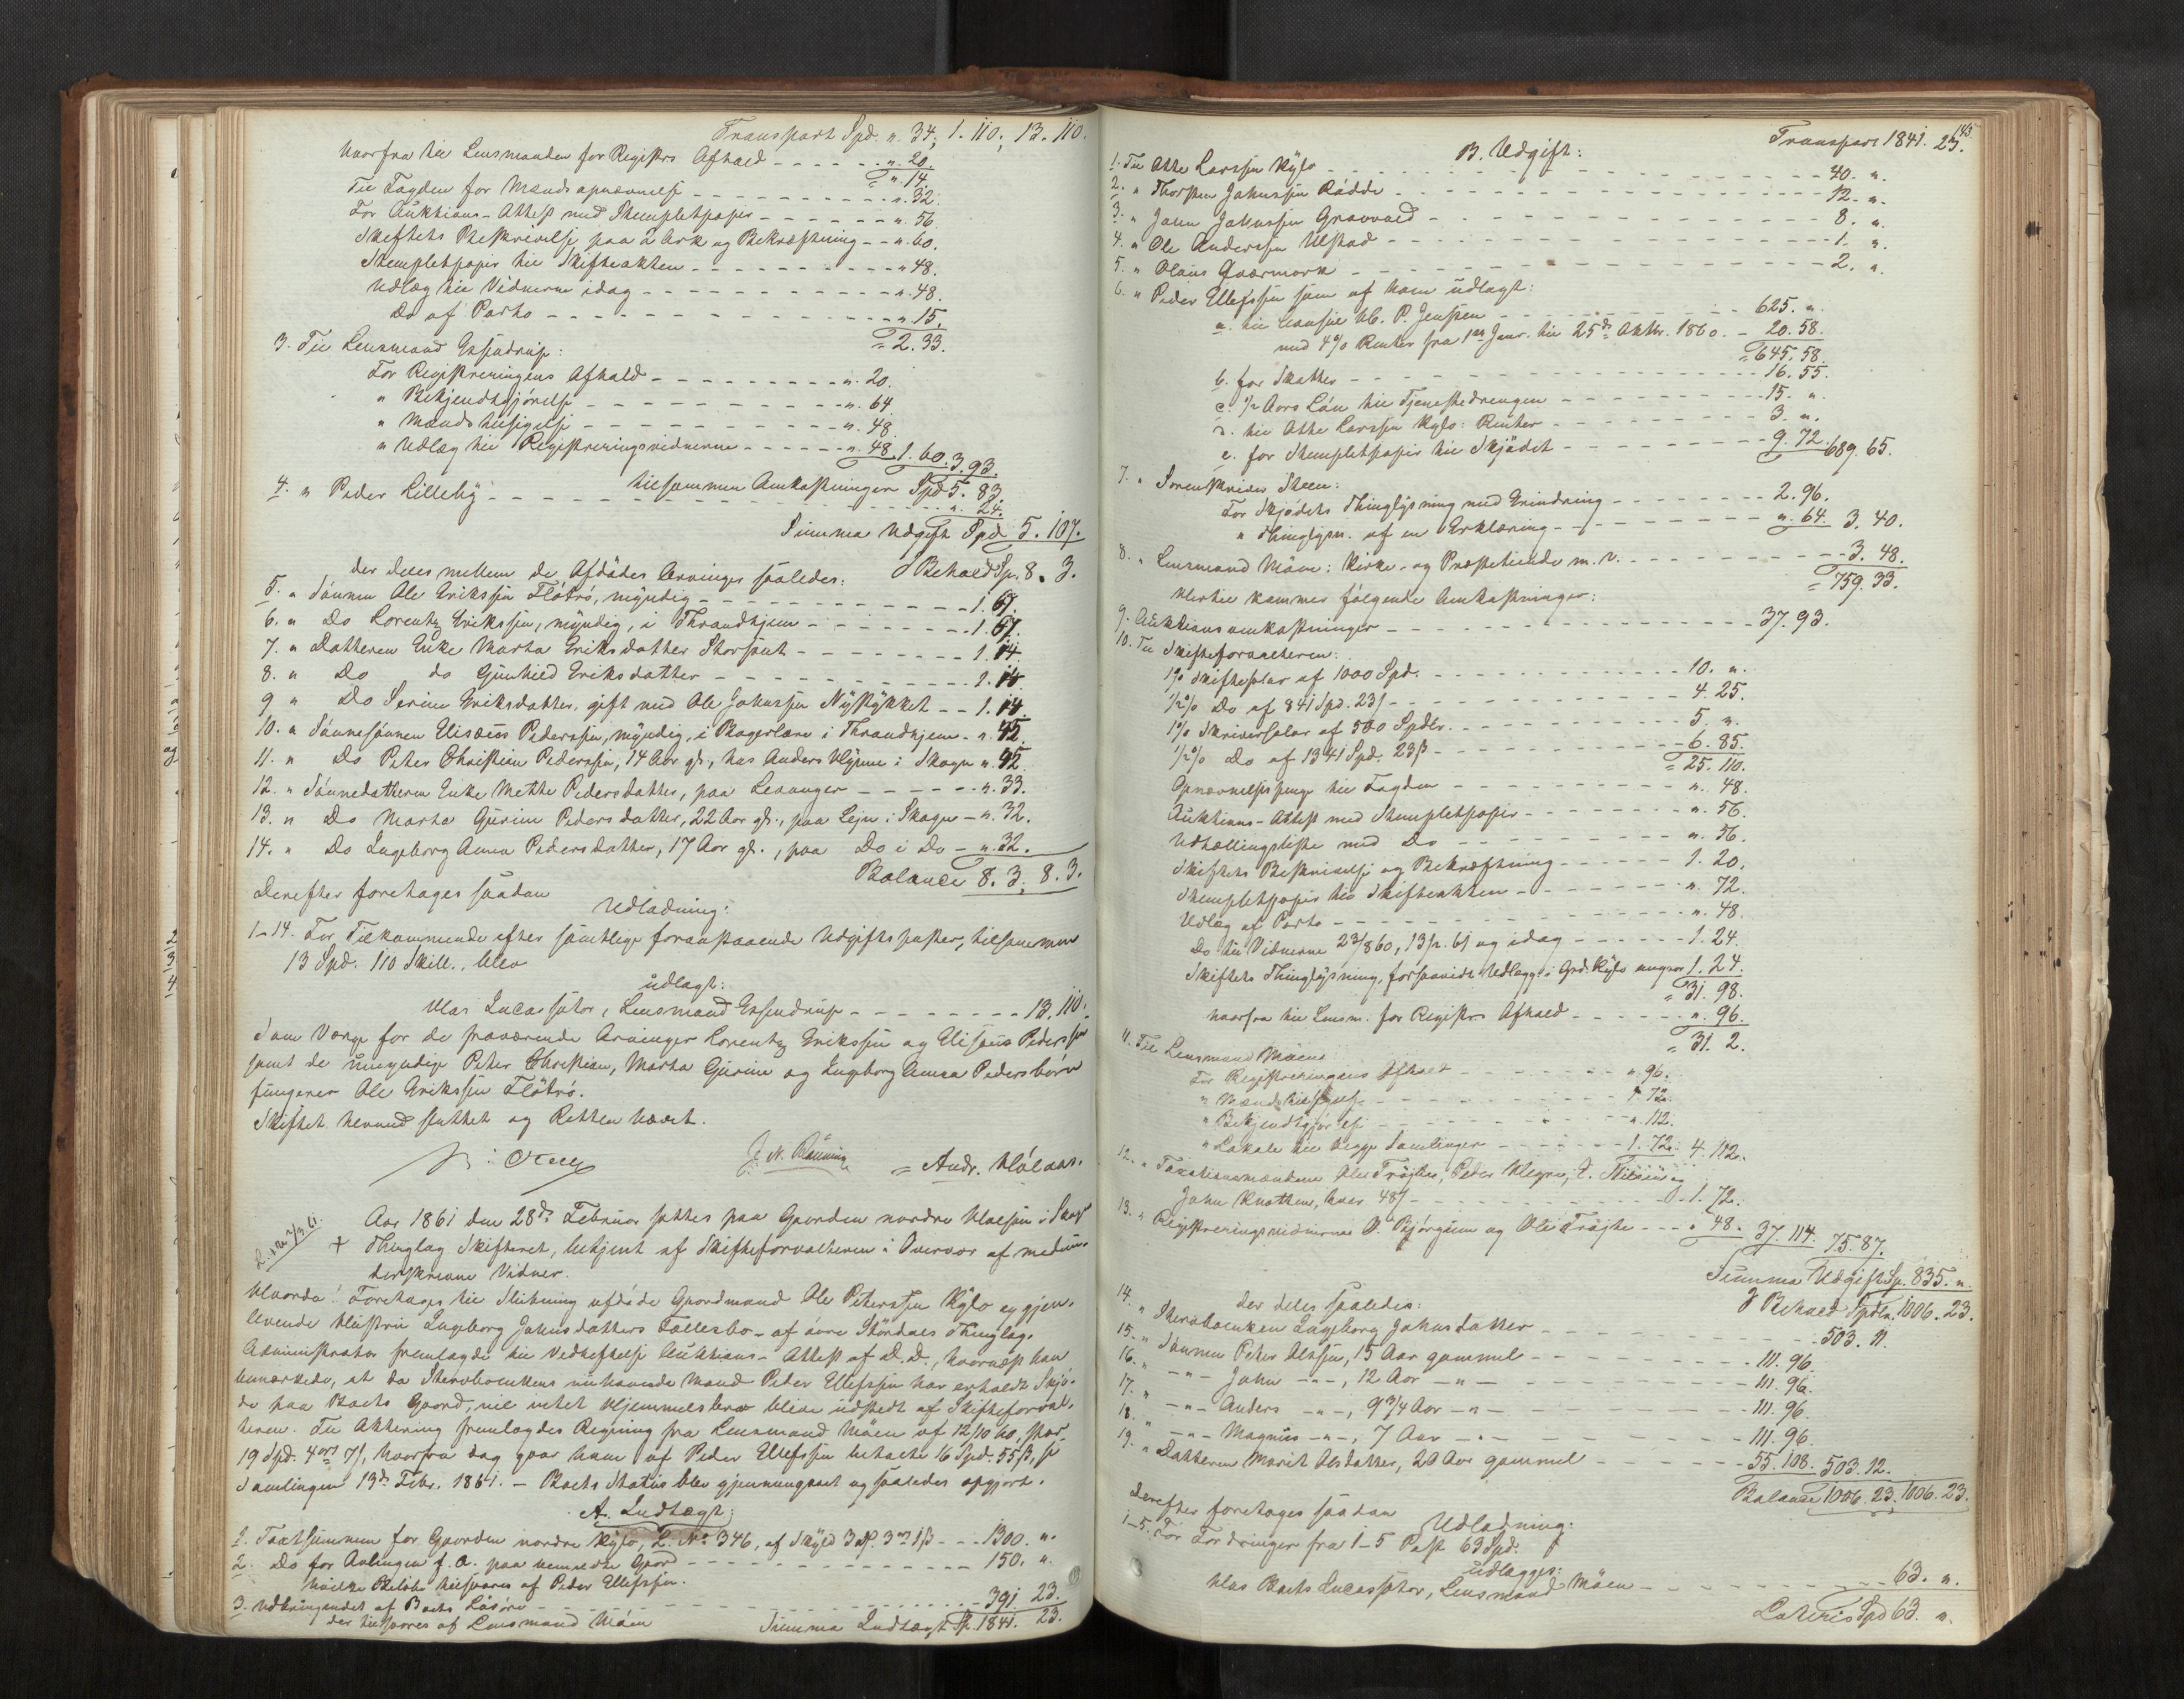 Transport Spd. „ 34; 1. 110; 13. 110.
hvorfra til Lensmanden for Registrs Afhold – – – „ 20.
= „ 14.
Til Fogden for Mandsopnævnelse – – – „ 32.
For Auktions-Attest med Stempletpapir – – – „ 56.
Skiftets Beskrivelse paa 2 Ark og Bekræftning – – „ 60.
Stempletpapir til Skifteakten – – – „ 48.
Udlæg til Vidnerne idag – – – „ 48.
Do af Porto – – – „ 15.
= 2. 33.
3. Til Lensmand Essendrup:
For Registreringens Afhold – – – „ 20.
„ Bekjendtgjörelse – – – „ 64.
„ Mands tilsigelse – – – „ 48.
„ Udlæg til Registreringsvidnerne – – – „ 48. 1. 60. 3. 93.
tilsammen Omkostninger Spd 5. 83.
4. „ Peder Lilleby – – – „ 24.
Summa Udgift Spd 5. 107.
I Behold Sp. 8. 3.
der deles mellem de Afdödes Arvinger saaledes:
5. „ Sönnen Ole Erikssen Flötrö, myndig – – – 1. 67.
6. „ Do Lorentz Erikssen, myndig, i Throndhjem – – – 1. 67.
7. „ Datteren Enke Marta Eriksdatter – – – 1. 14.
8. „ Do do Gunhild Eriksdatter – – – 1. 14.
9. „ Do Serine Eriksdatter, gift med Ole Johnssen Nystykket – – 1. 14.
10. „ Sönnesönnen Elisæus Pederssen, myndig, i Bagerlære i Throndhjem – „
11. „ Do Peter Christian Pederssen, 14 Aar gl., hos Anders Klynne i Skogn „
12. „ Sönnedatteren Enke Mette Pedersdatter, paa Levanger – – – „ 33.
13. „ Do Marta Gurine Pedersdatter, 22 Aar gl., paa Lejn i Skogn – „ 32.
14. „ Do Ingeborg Anna Pedersdatter, 17 Aar gl., paa Do i Do – „ 32.
Balance 8. 3. 8. 3.
Derefter foretages saadan
Udlodning:
1–14. For Tilkommende efter samtlige foranstaaende Udgiftsposter, tilsammen
13 Spd. 110 Skill., blev
udlagt:
Hos Incassator, Lensmand Essendrup – – – 13. 110.
Som Værge for de fraværende Arvinger Lorentz Erikssen og Elisæus Pederssen
samt de umyndige Peter Christian, Marta Gurine og Ingeborg Anna Pedersbörn
fungerer Ole Erikssen Flötrö.
Skiftet hermed sluttet og Retten hævet.
J. N. Rönning = Andr. Hölaas.
Aar 1861 den 28de Februar sattes paa Gaarden nordre Halsen i Skogn
Thinglag Skifteret, betjent af Skifteforvalteren i Overvær af medun-
derskrevne Vidner.
Hvorda! Foretages til Slutning afdöde Gaardmand Ole Peterssen Kylo og gjen-
levende Hustru Ingeborg Johnsdatters Fællesbo – af övre Stördals Thinglag.
Administrator fremlagde til Vedheftelse Auktions-Attest af D.D., hvornæst han
bemærkede, at da Sterbboenkens nuhavende Mand Peder Ellefssen har erholdt Skjö-
de paa Boets Gaard, vil intet Hjemmelsbrev blive udstedt af Skifteforval-
teren. Til Akteering fremlagdes Regning fra Lensmand Möen af 12/10 60, stor
19 Spd. 4 ort 7 ß, hvorfra dog var ham af Peder Ellefssen betalt 16 Spd. 55 ß, se
Samlingen 13de Febr. 1861. – Boets Status blev gjennemgaaet og saaledes opgjort.
A. Indtægt:
1. Taxtsummen for Gaarden nordre Kylo, L. No 346, af Skyld 3 d. 3 ort 1 ß – – – 1300. „
2. Do for Avlingen f. A. paa bemeldte Gaard – – – 150. „
hvilke Belöb tilsvares af Peder Ellefssen.
3. Udbringendet af Boets Lösöre – – – 391. 23.
der tilsvares af Lensmand Möen
Summa Indtægt Sp. 1841. 23.
143.
Transport 1841. 23.
B. Udgift:
1. Til Atte Larssen Kylo – – – 40. „
2. „ Thorsten Johnssen Rödde – – – 12. „
3. „ John Johnssen Graavold – – – 8. „
4. „ Ole Anderssen Ulstad – – – 1. „
5. „ Olaus Qværmork – – – 2. „
6. „ Peder Ellefssen som af ham udlagt:
a. til Consul H. P. Jenssen – – – 625. „
med 4% Renter fra 1ste Janr. til 25de Oktbr. 1860. – 20. 58.
= 645. 58.
b. for Skatter – – – 16. 55.
c. 1/2 Aars Lön til Tjenestedrengen – – – 15. „
d. til Atte Larssen Kylo: Renter – – – 3. „
e. for Stempletpapir til Skjödet – – – 9. 72. 689. 65.
7. „ Sorenskriver Steen:
For Skjödets Thinglysning med Erindring – – – 2. 96.
„ Thinglysn. af en Erklæring – – – „ 64. 3. 40.
8. „ Lensmand Möen: Kirke- og Præstetiende m. v. – – – 3. 48.
= 759. 33.
Hertil kommer fölgende Omkostninger:
9. Auktionsomkostninger – – – 37. 93.
10. Til Skifteforvalteren:
1% Skiftesalær af 1000 Spd. – – – 10. „
1/2% Do af 841 Spd. 23 ß – – – 4. 25.
1% Skriversalær af 500 Spdlr. – – – 5. „
1/2% Do af 1341 Spd. 23 ß – – – 6. 85.
= 25. 110.
Opnævnelsespenge til Fogden – – – „ 48.
Auktions-Attest med Stempletpapir – – – „ 56.
Udtællingsliste med Do – – – „ 56.
Skiftets Beskrivelse og Bekræftning – – – 1. 20.
Stempletpapir til Skifteakten – – – „ 72.
Udlæg af Porto – – – „ 48.
Do til Vidnerne 23/8 60, 13/2. 61 og idag – – – 1. 24.
Skiftets Thinglysning, forsaavidt Udlægget i Grd. Kylo angaar 1. 24.
= 31. 98.
hvorfra til Lensm. for Registrs Afhold – – – „ 96.
= 31. 2.
11. Til Lensmand Möen:
For Registreringens Afhold – – – „ 96.
„ Mands tilsigelse – – – „ 72.
„ Bekjendtgjörelse – – – „ 112.
„ Lokale til begge Samlinger – – – 1. 72. 4. 112.
12. „ Taxationsmændene Ole Fröjte, Peder
John Knotten, hver 48 ß – – – 1. 72.
13. „ Registreringsvidnerne O. Bjørgum og Ole Fröjte – – – „ 48. 37. 114. 75. 87.
Summa Udgift Sp. 835. „
I Behold Spdlr. 1006. 23.
der deles saaledes:
14. „ Sterbboenken Ingeborg Johnsdatter – – – 503. 11.
15. „ Sönnen Peter Olssen, 15 Aar gammel – – – 111. 96.
16. „ – „ – John – „ –, 12 Aar – „ – 111. 96.
17. „ – „ – Anders – „ –, 9 3/4 Aar – „ – 111. 96.
18. „ – „ – Magnus – „ –, 7 Aar – „ – 111. 96.
19. „ Datteren Marit Olsdatter, 20 Aar gammel – – – 55. 108. 503. 12.
Balance 1006. 23. 1006. 23.
Derefter foretages saadan
Udlodning:
1–5. For Fordringer fra 1–5 Post 63 Spd.
udlægges:
Hos Boets Incassator, Lensmand Möen – – – 63. „
Lateris Spd 63. „